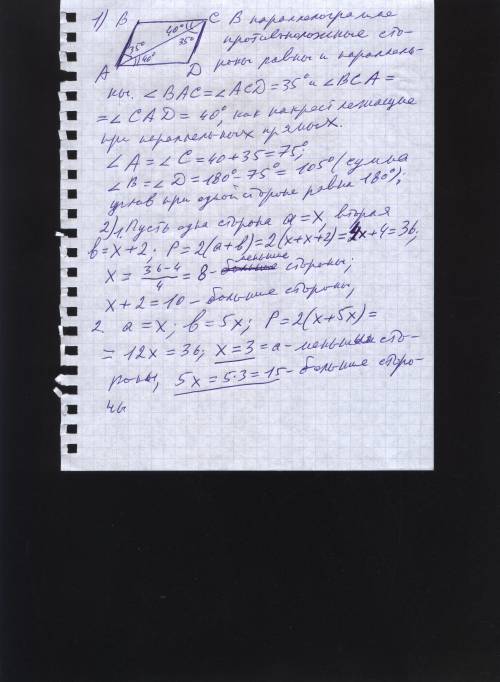 1) B C В параллелограмме
40° 35° 35° 40° противоположные сто-
A D роны равны и параллель-
ны. ∠BAC=∠ACD=35° и ∠BCA=
=∠CAD= 40°, как накрест лежащие
при параллельных прямых.
∠A=∠C=40+35=75°;
∠B=∠D=180°-75°= 105° (сумма
углов при одной стороне равна 180°);
2) 1. Пусть одна сторона a=x, вторая
b=x+2; P=2(a+b)=2(x+x+2)=4x+4=36;
x= 36-4/4 =8- большие меньшие стороны;
x+2=10- большие стороны;
2 a=x; b=5x; P=2(x+5x)=
=12x=36; x=3=a- меньшие сто-
роны, 5x=5·3=15- большие сторо-
ны